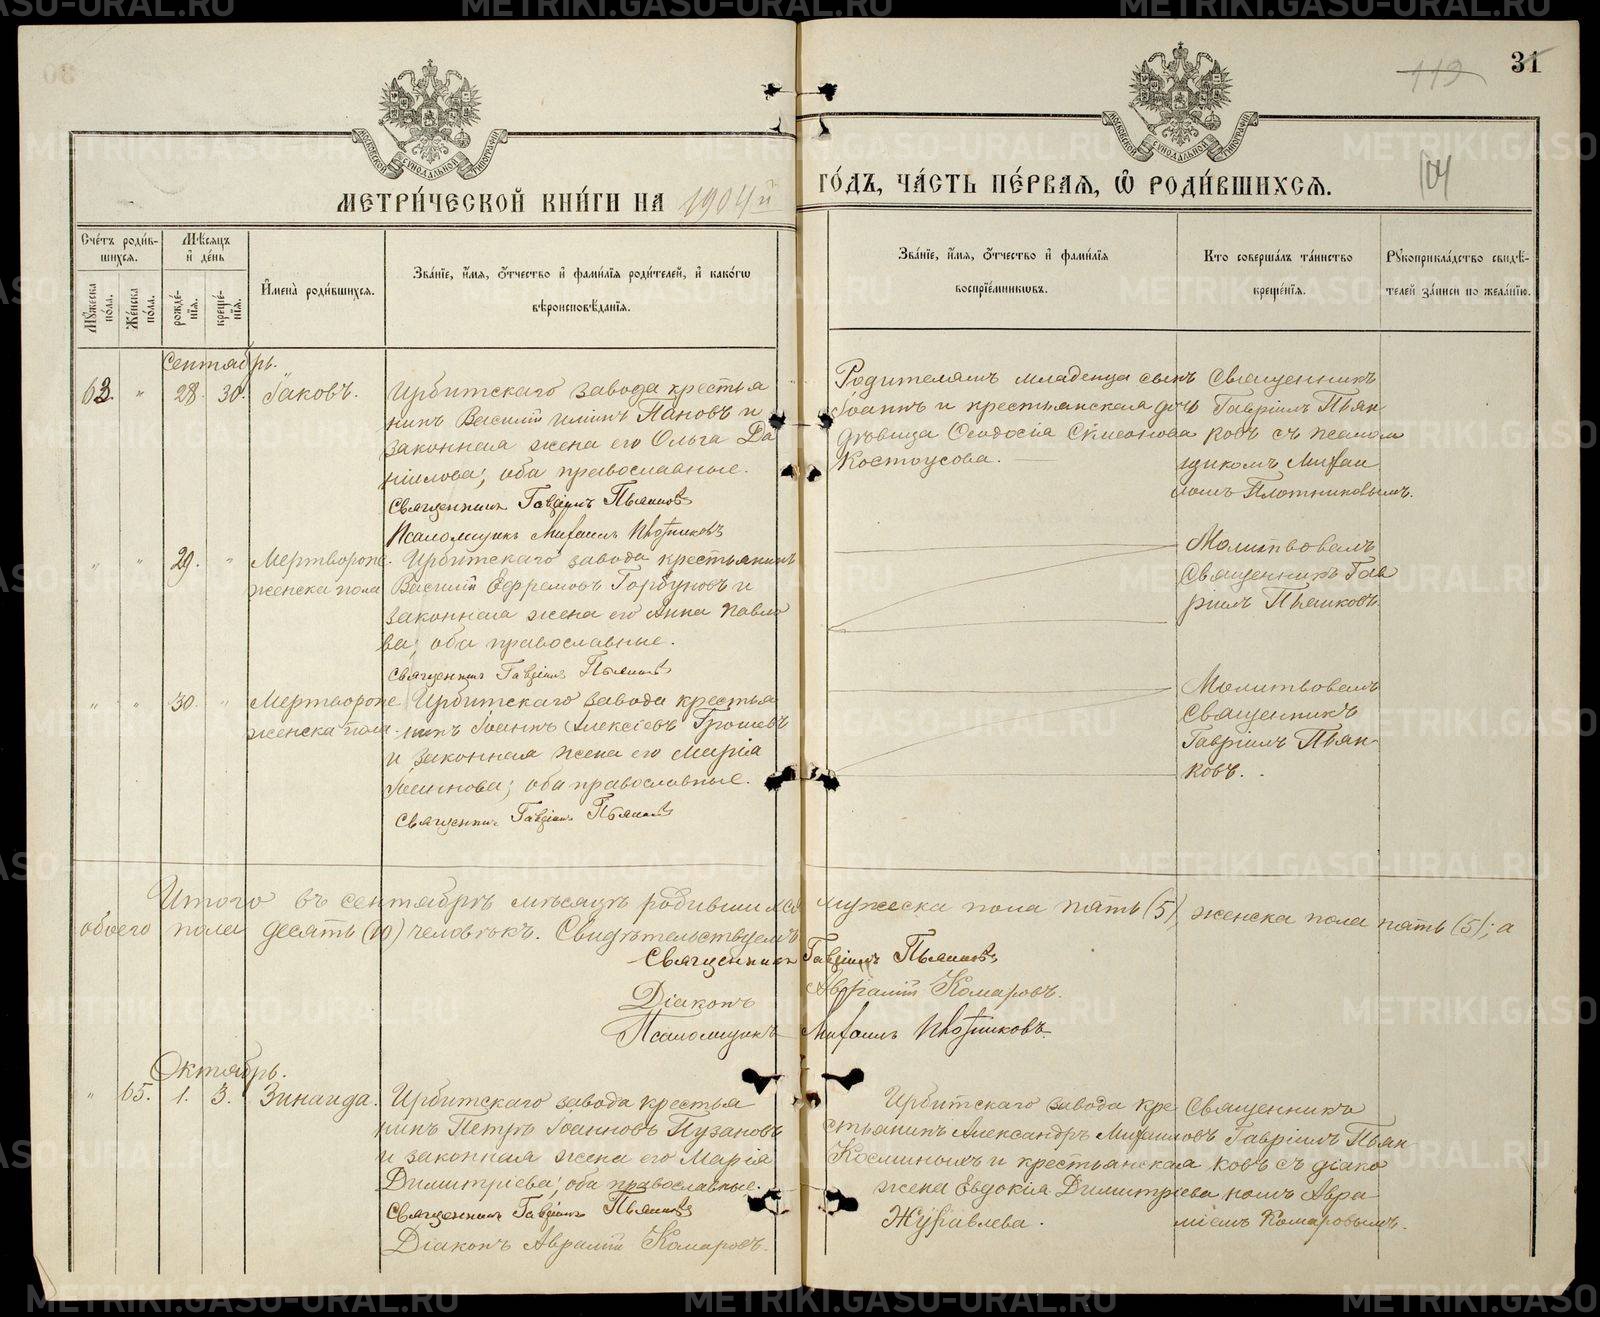 119
31
МЕТРИ́ЧЕСКОЙ КНИ́ГИ НА 1904й ГО́ДЪ, ЧА́СТЬ ПЕ́РВАЯ, Ѿ РОДИ́ВШИХСЯ.
104
Сче́тъ роди́вшихся.
Му́жеска по́ла.
Же́нска по́ла.
Мѣ́сяцъ и҆ де́нь
рожде́нїя.
креще́нїя.
И҆мена̀ роди́вшихся.
Зва́нїе, и҆́мя, ѻ҆́тчество и҆ фами́лїя роди́телей, и҆ како́гѡ
вѣроисповѣ́данїя.
Зва́нїе, и҆́мя, ѻ҆́тчество и҆ фами́лїя
воспрїе́мникѡвъ.
Кто соверша́лъ та́инство
креще́нїя.
Рꙋкоприкла́дство свидѣ́-
телей за́писи по жела́нїю.
Сентябрь.
63. " 28. 30. Іаковъ.
Ирбитскаго завода крестья
нинъ Василій Пановъ и
законная жена его Ольга Да
ніилова; оба православные.
Священникъ Гавріилъ Пьянковъ
Псаломщикъ Михаилъ Плотниковъ
Родителямъ младенца сынъ
Іоаннъ и крестьянская дочь
дѣвица Ѳеодосія Симеонова
Костоусова.
Священникъ
Гавріилъ Пьян
ковъ съ псалом
щикомъ Михаи
ломъ Плотниковымъ.
" " 29. " Мертворожд.
женска пола
Ирбитскаго завода крестьянинъ
Василій Ефремовъ Горбуновъ и
законная жена его Анна Павло
ва; оба православные.
Священникъ Гавріилъ Пьянковъ
Молитвовалъ
Священникъ Гав
ріилъ Пьянковъ.
" " 30. " Мертворожд
женска пола
Ирбитскаго завода крестья
нинъ Іоаннъ Алексѣевъ Грошевъ
и законная жена его Марія
Іоаннова; оба православные.
Священникъ Гавріилъ Пьянковъ
Молитвовалъ
Священникъ
Гавріилъ Пьян
ковъ.
Итого въ сентябрѣ мѣсяцѣ родившихся мужеска пола пять (5), женска пола пять (5); а
обоего пола десять (10) человѣкъ. Свидѣтельствуемъ
Священникъ Гавріилъ Пьянковъ
Діаконъ Авраамій Комаровъ.
Псаломщикъ Михаилъ Плотниковъ.
Октябрь.
" 65. 1. 3. Зинаида.
Ирбитскаго завода крестья
нинъ Петръ Іоанновъ Пузановъ
и законная жена его Марія
Димитріева; оба православные.
Священникъ Гавріилъ Пьянковъ
Діаконъ Авраамій Комаровъ.
Ирбитскаго завода кре
стьянинъ Александръ Михаиловъ
Косминыхъ и крестьянская
жена Евдокія Димитріева
Журавлева.
Священникъ
Гавріилъ Пьян
ковъ съ діако
номъ Авра
міемъ Комаровымъ.
METRIKI.GASO-URAL.RU